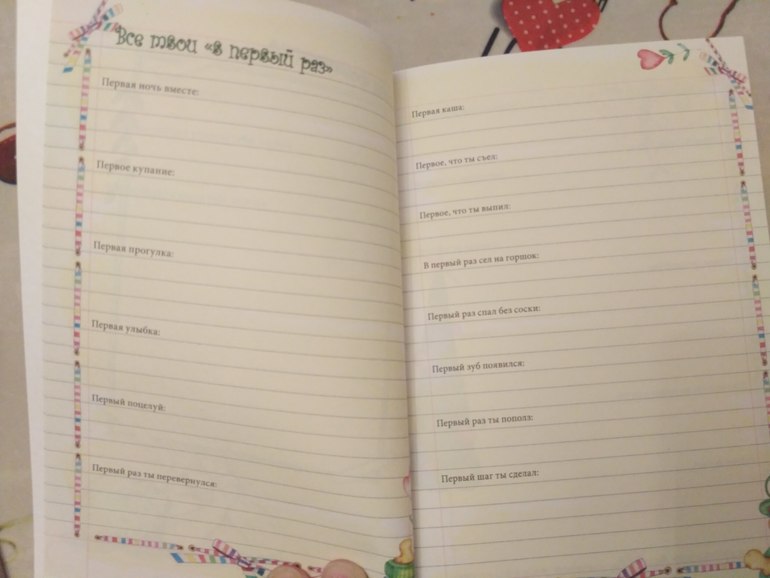 Все твои «в первый раз»
Первая ночь вместе:
Первое купание:
Первая прогулка:
Первая улыбка:
Первый поцелуй:
Первый раз ты перевернулся:
Первая каша:
Первое, что ты съел:
Первое, что ты выпил:
В первый раз сел на горшок:
Первый раз спал без соски:
Первый зуб появился:
Первый раз ты попола:
Первый шаг ты сделал: